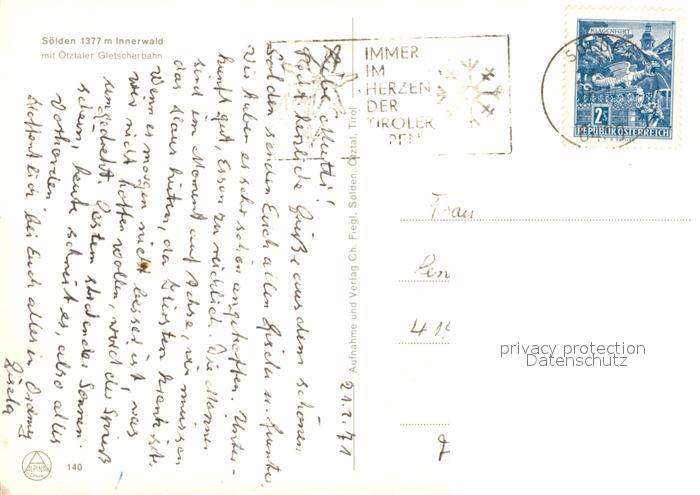 Sölden 1377 m Innerwald
mit Ötztaler Gletscherbahn
21.2.71
Liebe Mutti!
Recht herzliche Grüße aus dem schönen
Sölden senden Euch allen Gisela u. Gunter.
Wir haben es sehr schön angetroffen. Unter-
kunft gut, Essen zu reichlich. Die Männer
sind im Moment auf Achse, wir müssen
das Haus hüten, da Kirsten krank ist.
Wenn es morgen nicht besser ist, was
wir nicht hoffen wollen, wird der Spieß
umgedreht. Gestern strahlender Sonnen-
schein, heute schneit es, also alles
vorhanden.
Hoffentlich bei Euch alles in Ordnung
Gisela
ALPINA
140
Aufnahme und Verlag Ch. Fiegl, Sölden, Ötztal, Tirol
IMMER
IM
HERZEN
DER
TIROLER
KLAGENFURT
2S
REPUBLIK ÖSTERREICH
Frau
41
privacy protection
Datenschutz